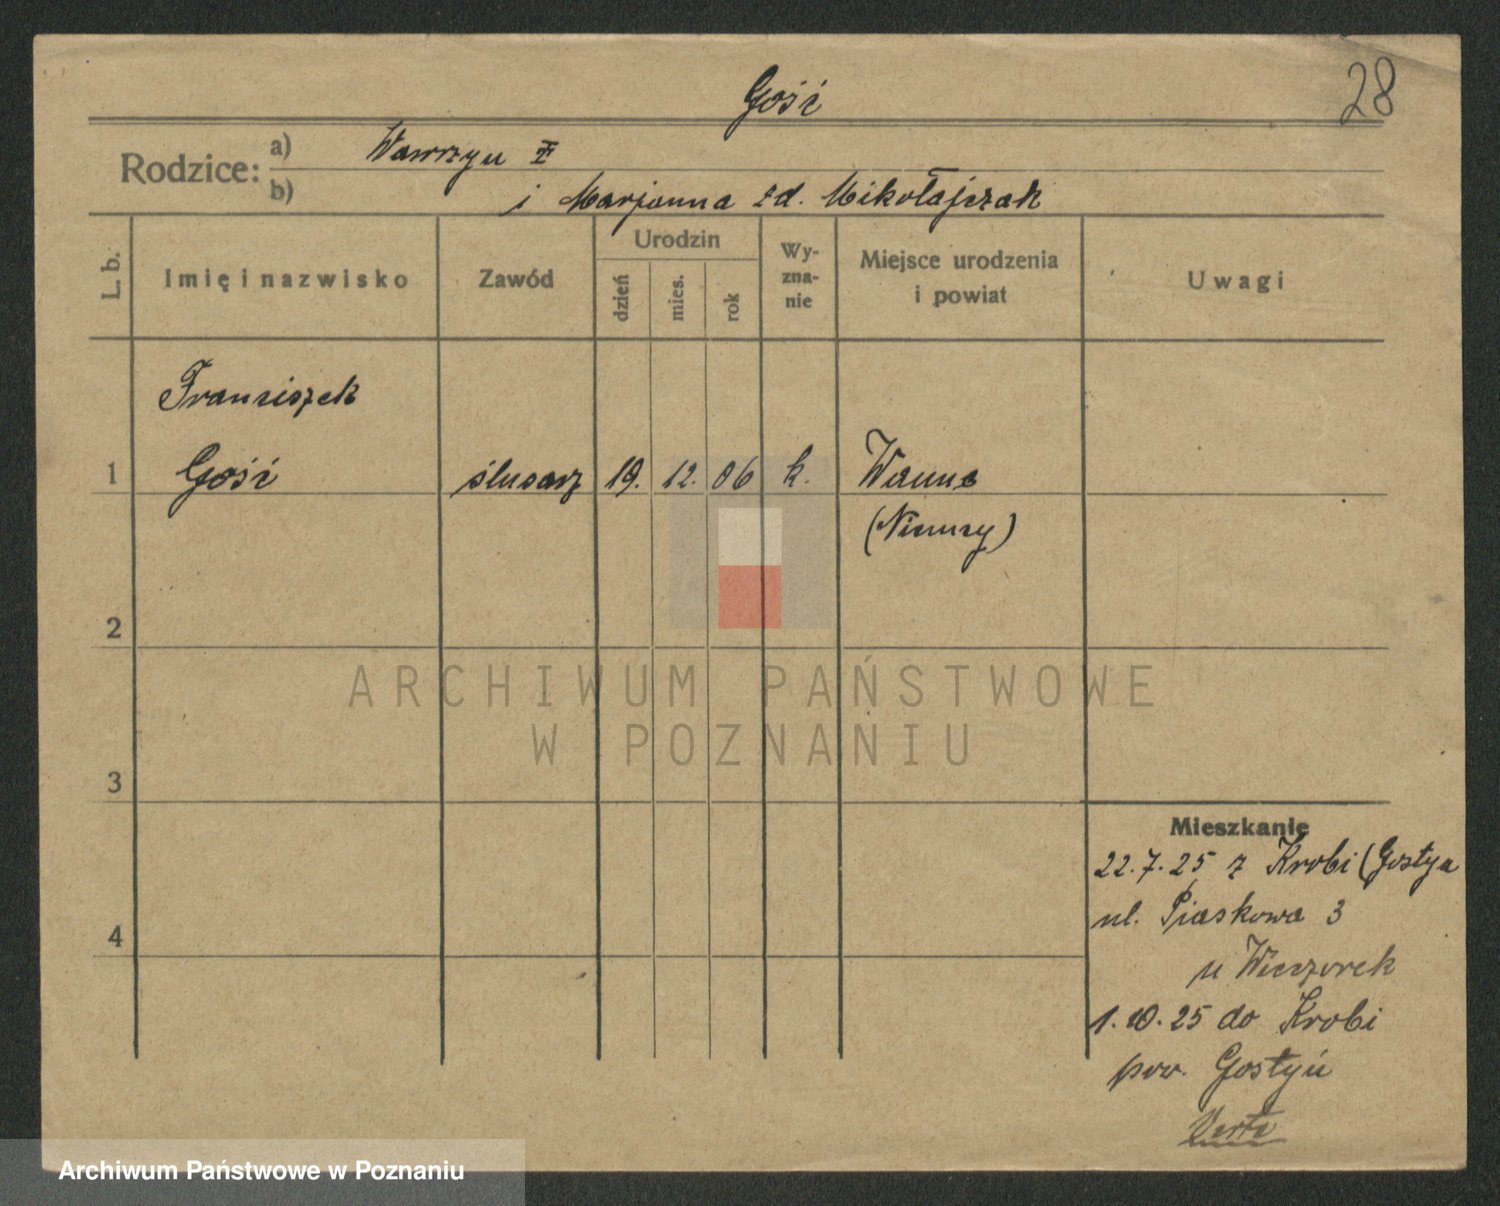 Gość
28
Rodzice: a) Wawrzyn
b) i Marjanna zd. Mikołajczak
L. b.
Imię i nazwisko
Zawód
Urodzin
dzień
mies.
rok
Wy-
zna-
nie
Miejsce urodzenia
i powiat
Uwagi
Franciszek
1 Gość ślusarz 19. 12. 06 k. Wanne
(Niemcy)
2
3
4
Mieszkanie
22.7.25 z Krobi (Gostyn
ul. Piaskowa 3
u Wieczorek
1.10.25 do Krobi
pow. Gostyń
Verte
ARCHIWUM PAŃSTWOWE
W POZNANIU
Archiwum Państwowe w Poznaniu